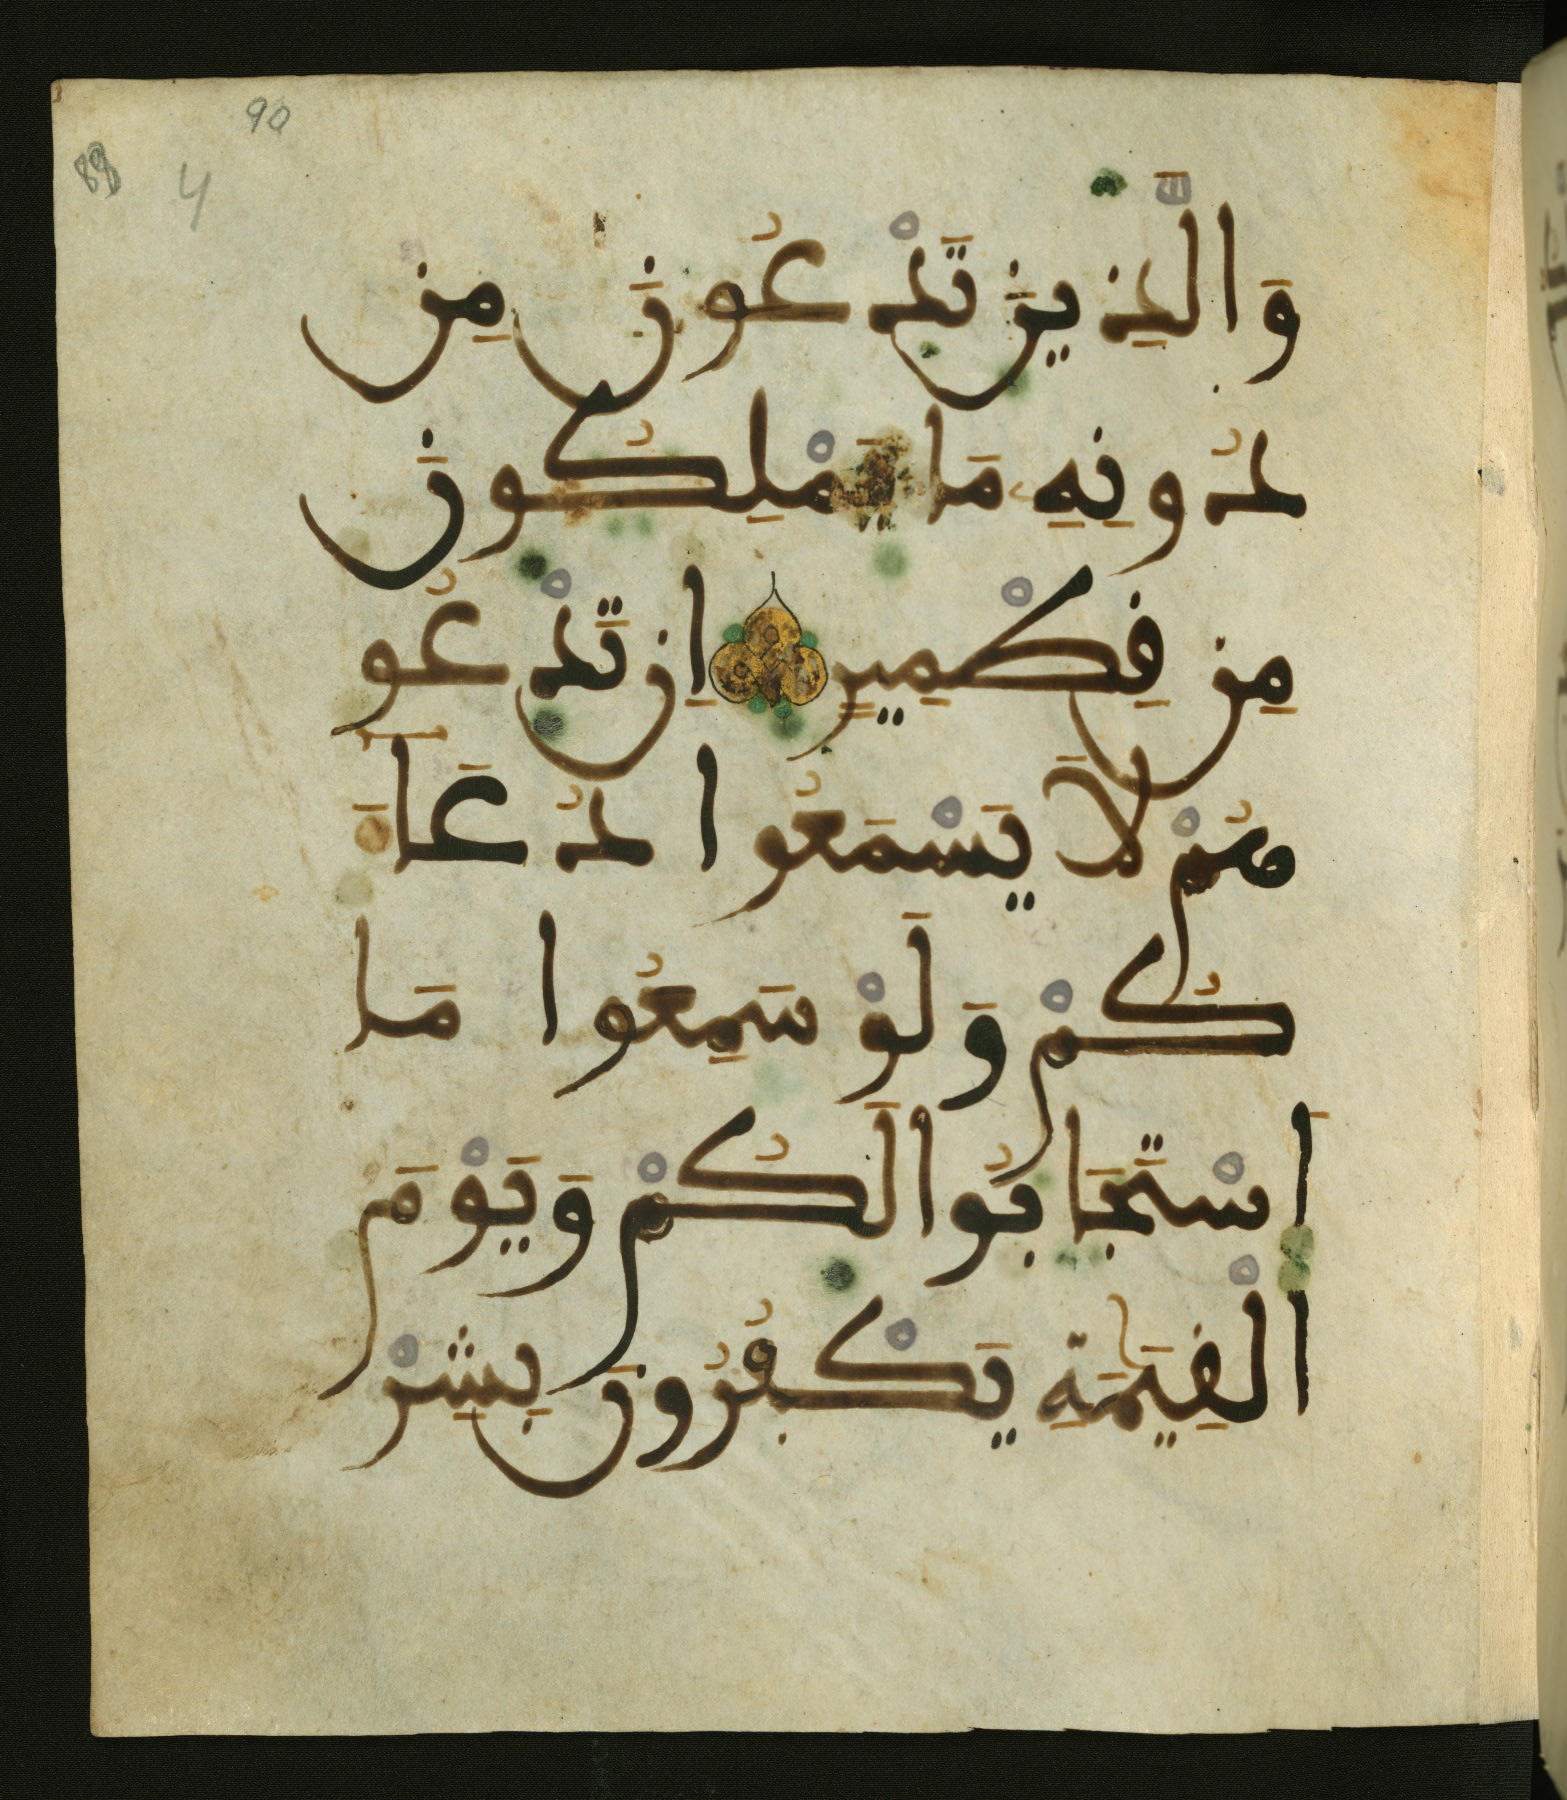 90
88 4
وَالَّذِينَ تَدْعُونَ مِن
دُونِهِ مَا يَمْلِكُونَ
مِن قِطْمِيرٍ اِن تَدْعُو
هُمْ لَا يَسْمَعُوا دُعَآءَ
كُمْ وَلَوْ سَمِعُوا مَا
اَسْتَجَابُوا لَكُمْ وَيَوْمَ
اَلْقِيَٰمَةِ يَكْفُرُونَ بِشِرْ